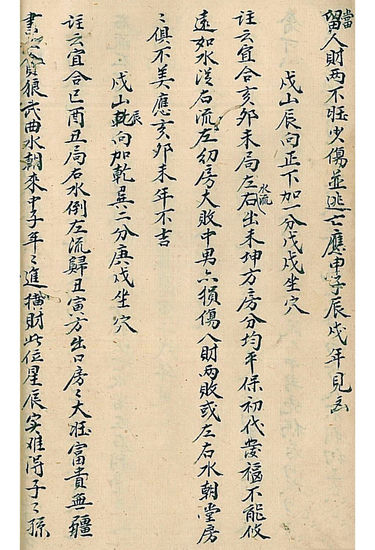 當人財兩不旺少傷並逃亡應申子辰戌年見凶
戊山辰向正下加一分戊戌坐穴
註云宜合亥卯未局左水流右出未坤方房分均平保初代發福不能攸
遠如水從右流左幼房大敗中男六損傷人財兩敗或左右水朝堂房
〻俱不美應亥卯未年不吉
戊山辰向加乾巽二分庚戌坐穴
註云宜合巳酉丑局右水倒左流歸丑寅方出口房〻大旺富貴無疆
貪狼武曲水朝來中子年〻進橫財此位星辰实难得子〻孫